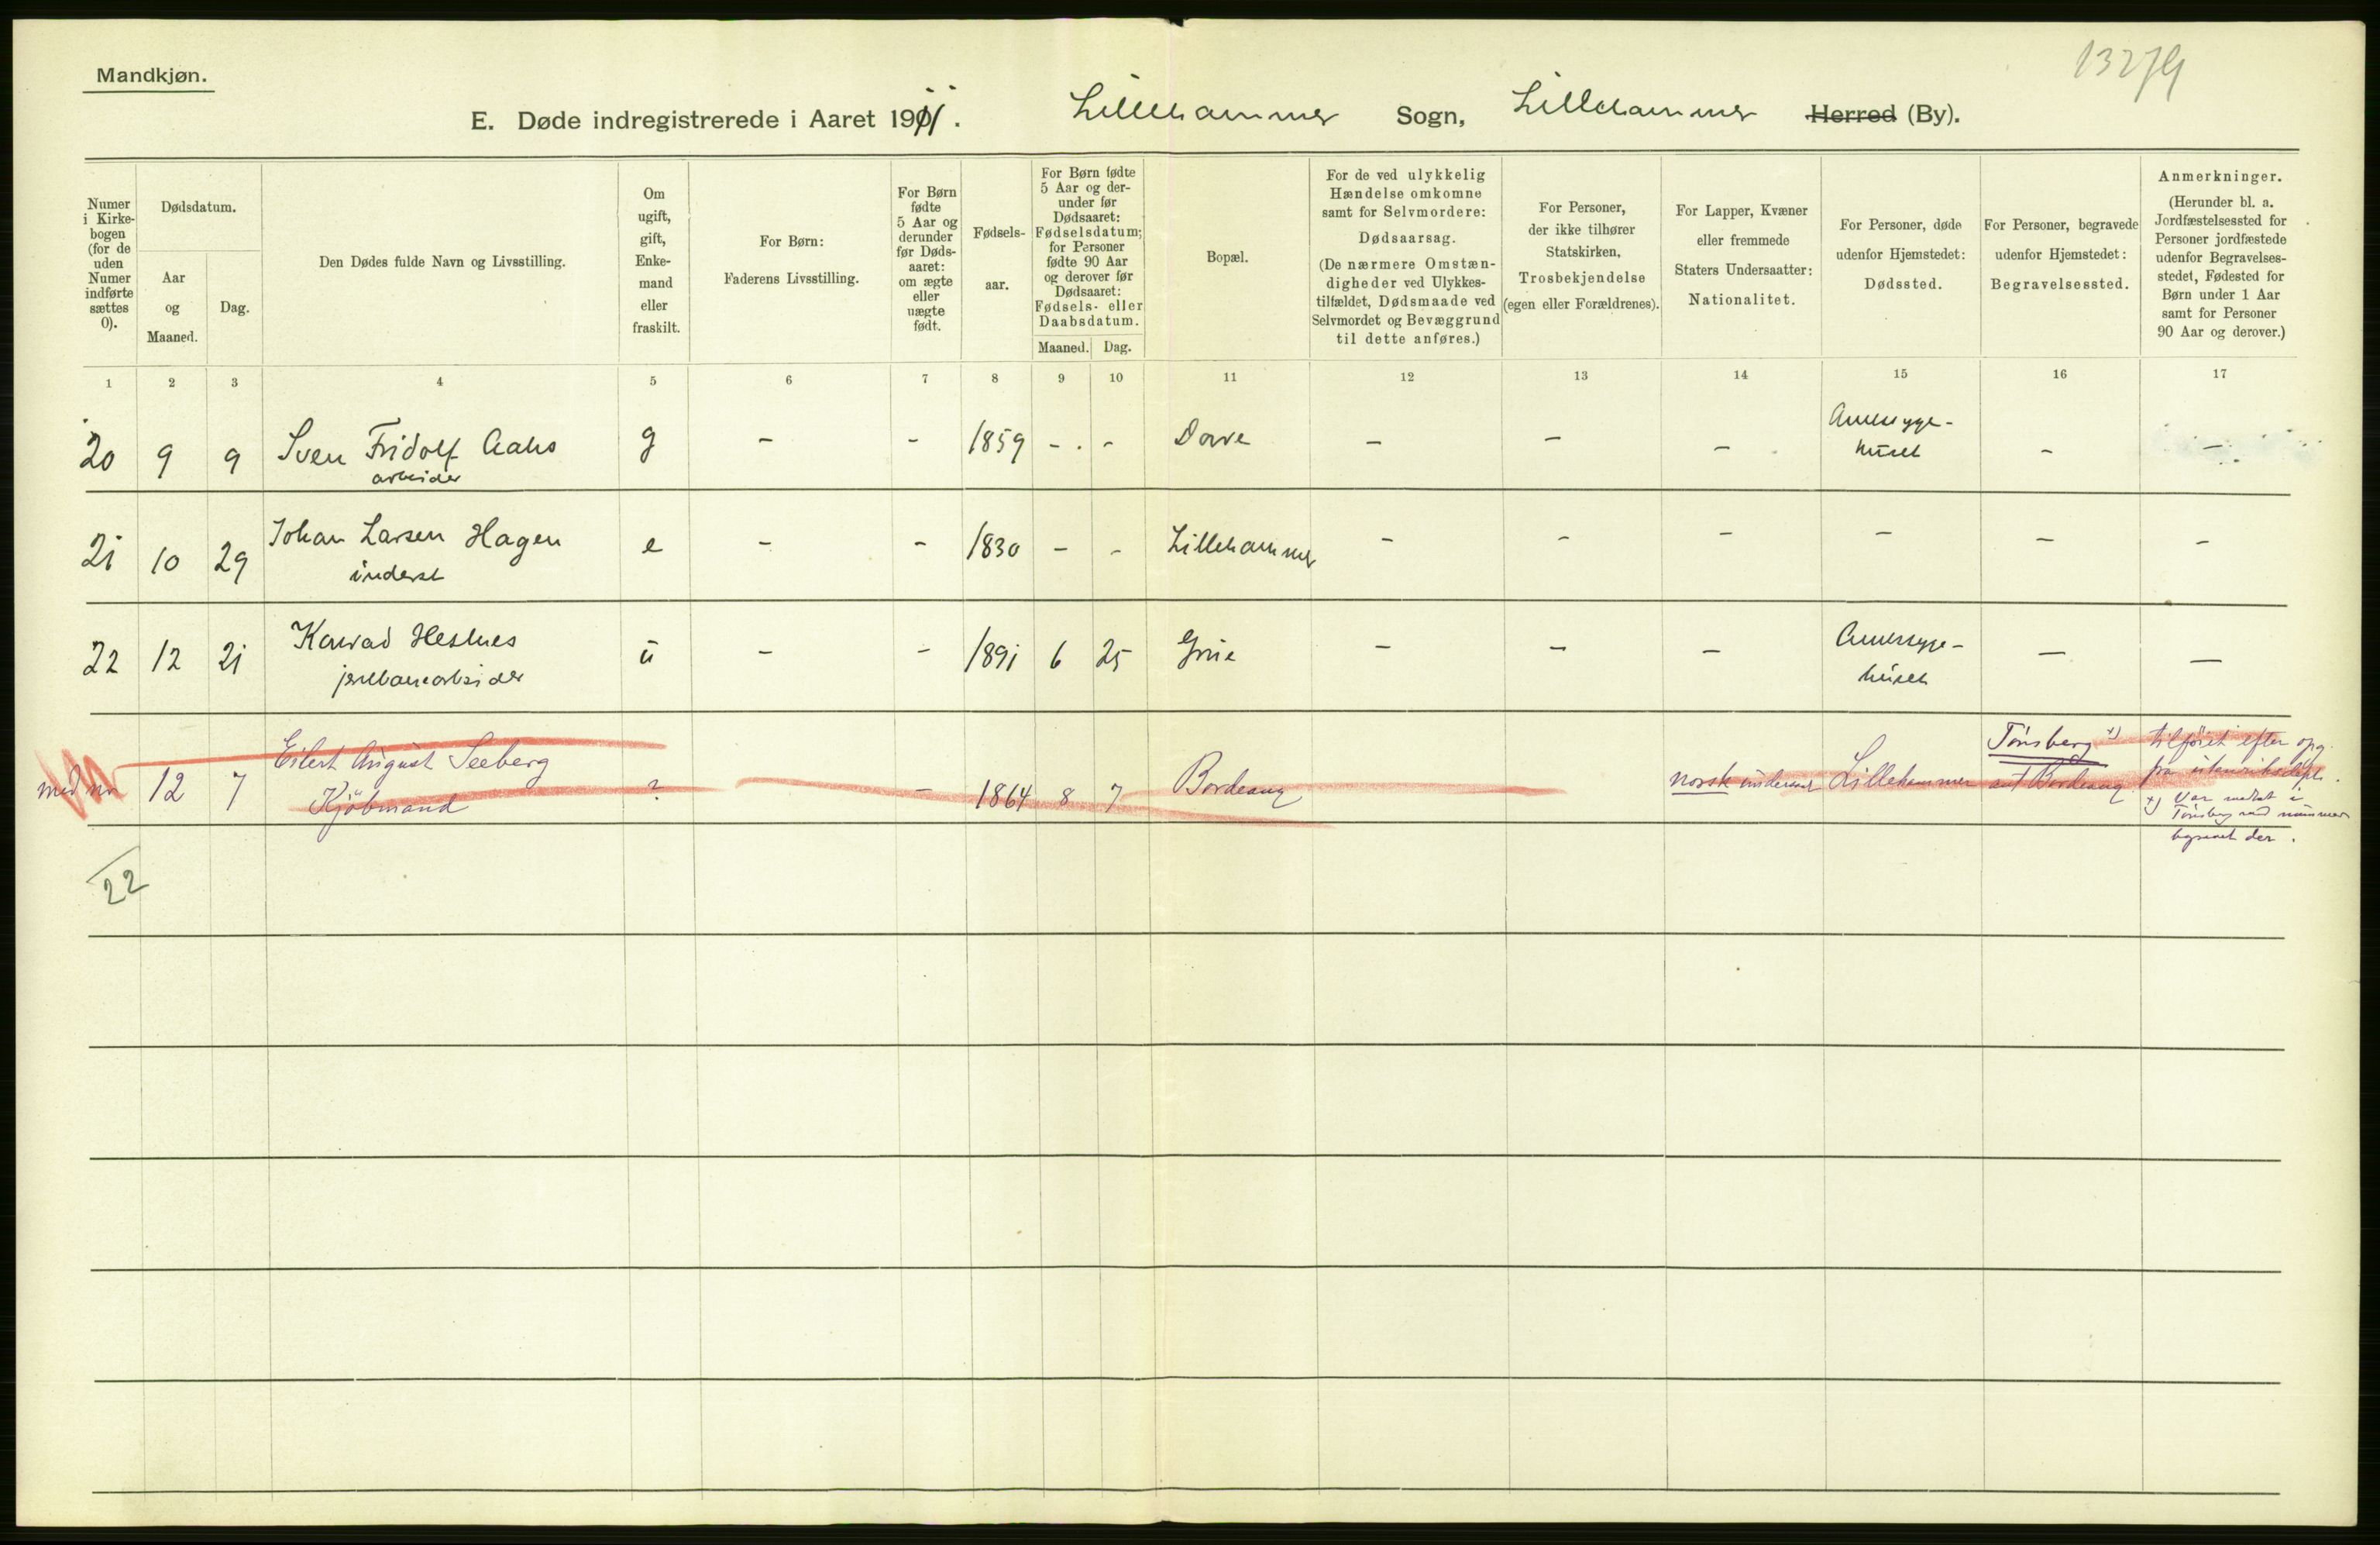 Mandkjøn.
13279
E. Døde indregistrerede i Aaret 1911. Lillehammer Sogn, Lillehammer Herred (By).
Numer i Kirkebogen (for de uden Numer indførte sættes 0).
Dødsdatum.
Aar og Maaned.
Dag.
Den Dødes fulde Navn og Livsstilling.
Om ugift, gift, Enkemand eller fraskilt.
For Børn: Faderens Livsstilling.
For Børn fødte 5 Aar og derunder før Dødsaaret: om ægte eller uægte født.
Fødselsaar.
For Børn fødte 5 Aar og derunder før Dødsaaret: Fødselsdatum; for Personer fødte 90 Aar og derover før Dødsaaret: Fødsels- eller Daabsdatum.
Maaned. Dag.
Bopæl.
For de ved ulykkelig Hændelse omkomne samt for Selvmordere: Dødsaarsag. (De nærmere Omstændigheder ved Ulykkestilfældet, Dødsmaade ved Selvmordet og Bevæggrund til dette anføres.)
For Personer, der ikke tilhører Statskirken, Trosbekjendelse (egen eller Forældrenes).
For Lapper, Kvæner eller fremmede Staters Undersaatter: Nationalitet.
For Personer, døde udenfor Hjemstedet: Dødssted.
For Personer, begravede udenfor Hjemstedet: Begravelsessted.
Anmerkninger. (Herunder bl. a. Jordfæstelsessted for Personer jordfæstede udenfor Begravelsesstedet, Fødested for Børn under 1 Aar samt for Personer 90 Aar og derover.)
1 2 3 4 5 6 7 8 9 10 11 12 13 14 15 16 17
20 9 9 Sven Fridolf g - - 1859 - - Dovre - - - Amtssyge- - -
arbeider huset
21 10 29 Johan Larsen Hagen e - - 1830 - - Lillehammer - - - - - -
inderst
22 12 21 Konrad Hesnes ü - - 1891 6 25 Grue - - - Amtssyge- - -
jernbanearbeider huset
med nr 12 7 Eilert August Seeberg ? - 1864 8 7 Bordeaux norsk undersaat Lillehammer Tønsberg x) tilføiet efter opg.
Kjöbmand ant Bordeaux fra utenriksdept.
x) Var medtat i
Tønsberg med nummer
begravet der.
22